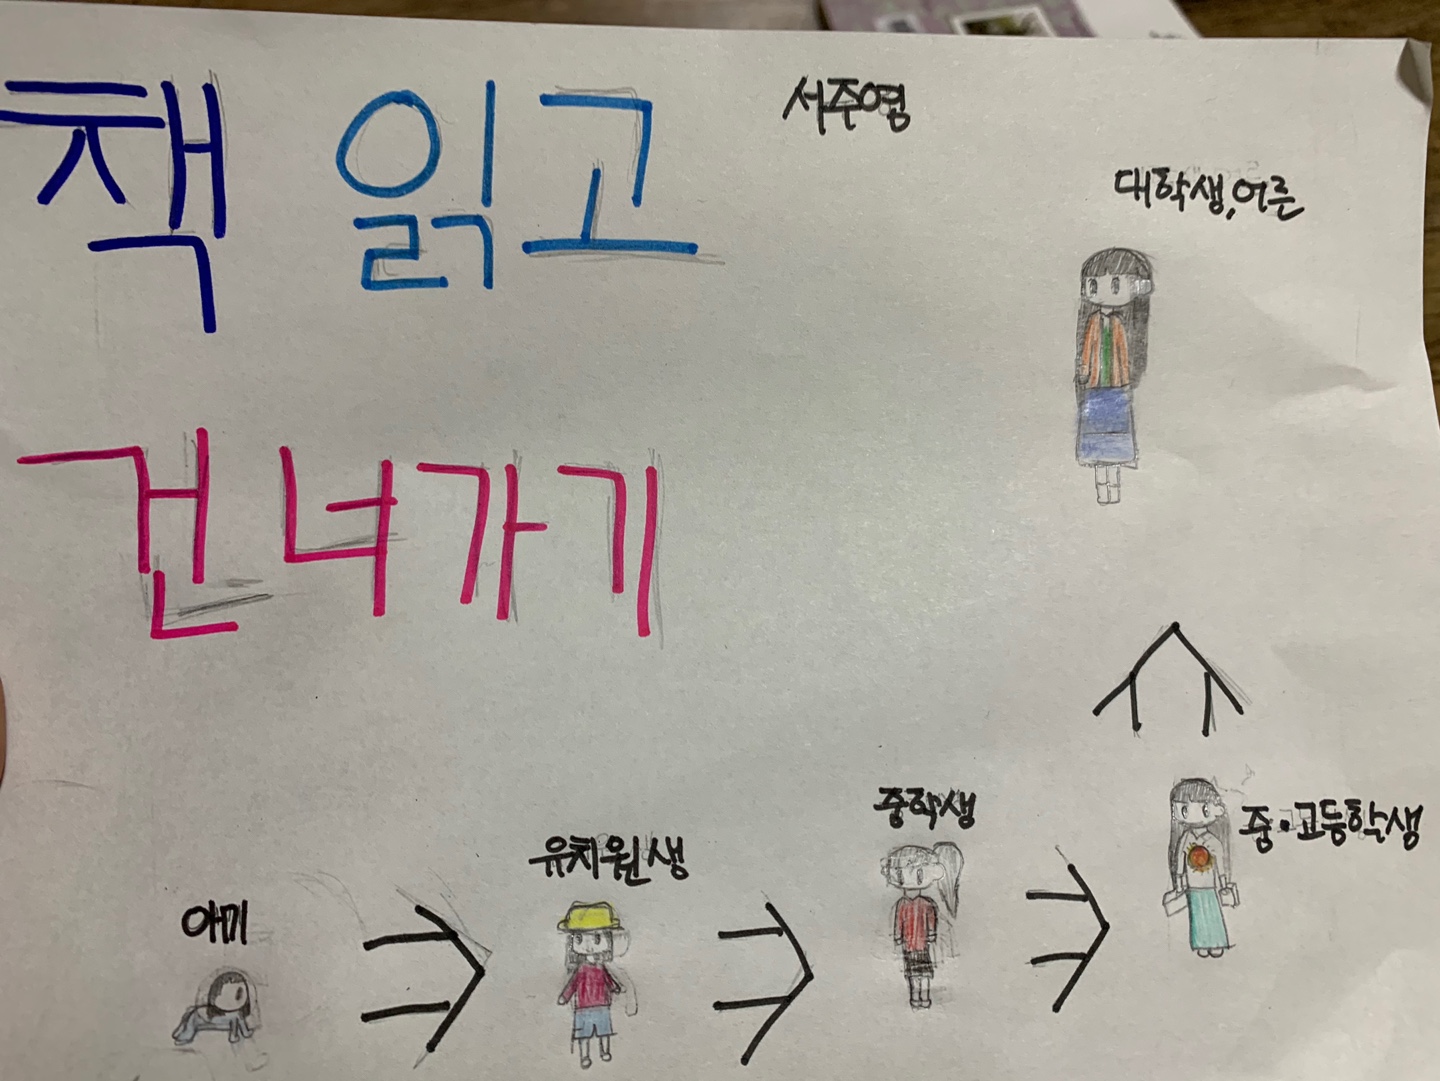 책 읽고
서주염
대학생,어른
건너가기
중학생
중·고등학생
유치원생
아기